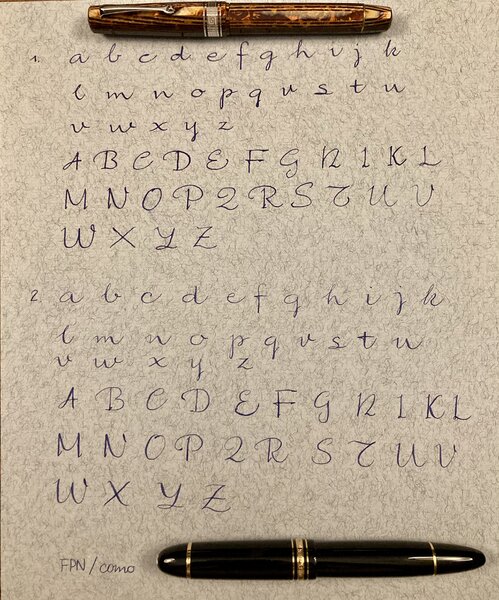 1. a b c d e f g h i j k
l m n o p q r s t u
v w x y z
A B C D E F G H I K L
M N O P Q R S T U V
W X Y Z
2. a b c d e f g h i j k
l m n o p q r s t u
v w x y z
A B C D E F G H I K L
M N O P Q R S T U V
W X Y Z
FPN/como